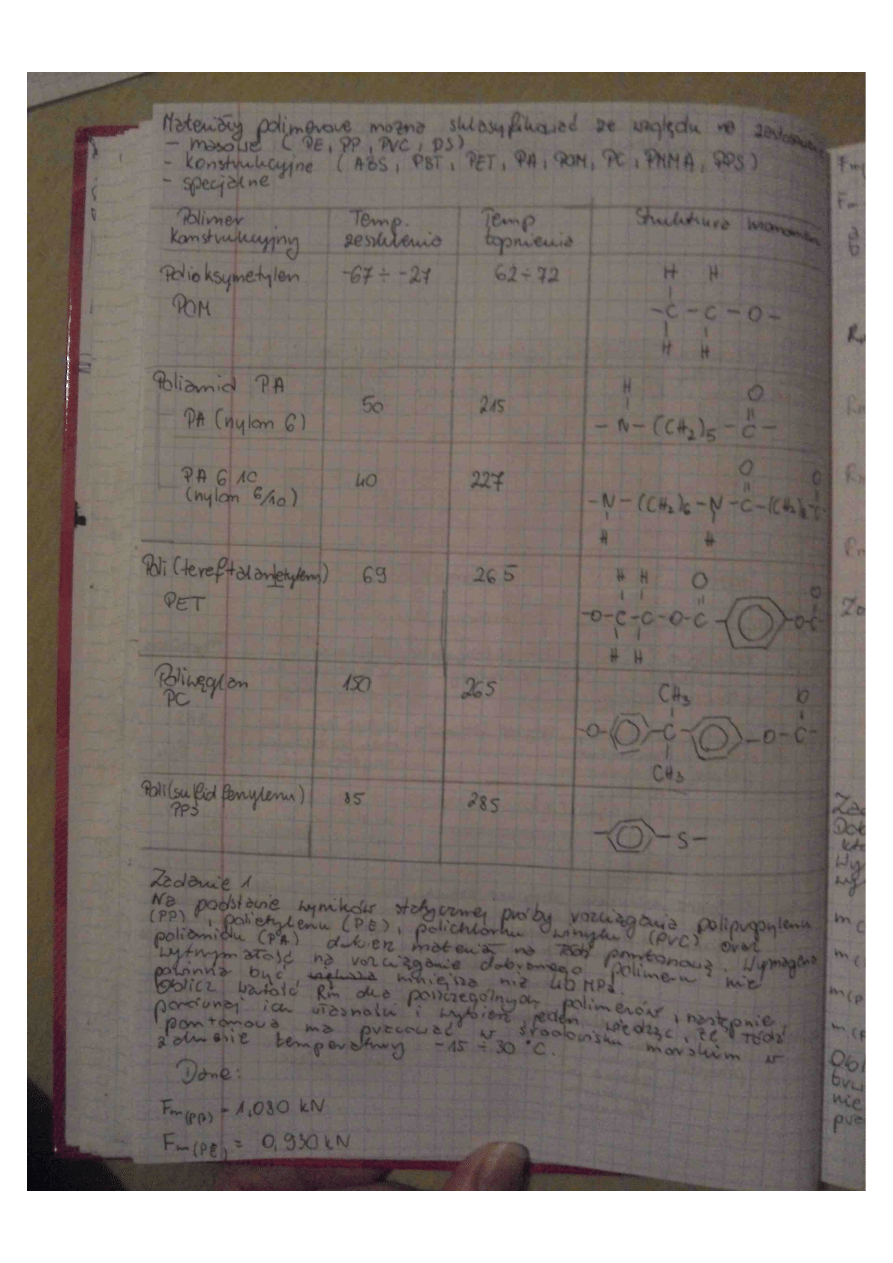 Materiały polimerowe można sklasyfikować ze względu na zastosowanie
– masowe ( PE, PP, PVC, PS)
– konstrukcyjne ( ABS, PBT, PET, PA, POM, PC, PMMA, PPS)
– specjalne
Polimer konstrukcyjny
Temp. zeszklenia
Temp topnienia
Struktura
Polioksymetylen POM
-67 ÷ -27
62 ÷ 72
H H
-C - C - O -
H H
Poliamid PA
PA (nylon 6)
50
215
H O
- N - (CH2)5 - C -
PA 6 10 (nylon 6/10)
40
227
O O
-N - (CH2)6 - N - C - (CH2)8 - C
H H
Poli(tereftalan etylenu) PET
69
265
H H O O
-O-C-C-O-C - -O-C
H H
Poliwęglan PC
150
265
CH3 O
-O- -C- -O-C-
CH3
Poli(sulfid fenylenu) PPS
85
285
- S -
Zadanie 1
Na podstawie wyników statycznej próby rozciągania polipropylenu
(PP), polietylenu (PE), polichlorku winylu (PVC) oraz
poliamidu (PA) dobierz materiał na łódź pontonową. Wymagana
wytrzymałość na rozciąganie dobranego polimeru nie
powinna być mniejsza niż 40 MPa.
Oblicz wartość Rm dla poszczególnych polimerów, następnie
porównaj ich własności i wybierz jeden wiedząc, że łódź
pontonowa ma pracować w środowisku morskim w
zakresie temperatury -15 ÷ 30 °C.
Dane:
Fm(PP) = 1,080 kN
Fm(PE) = 0,930 kN